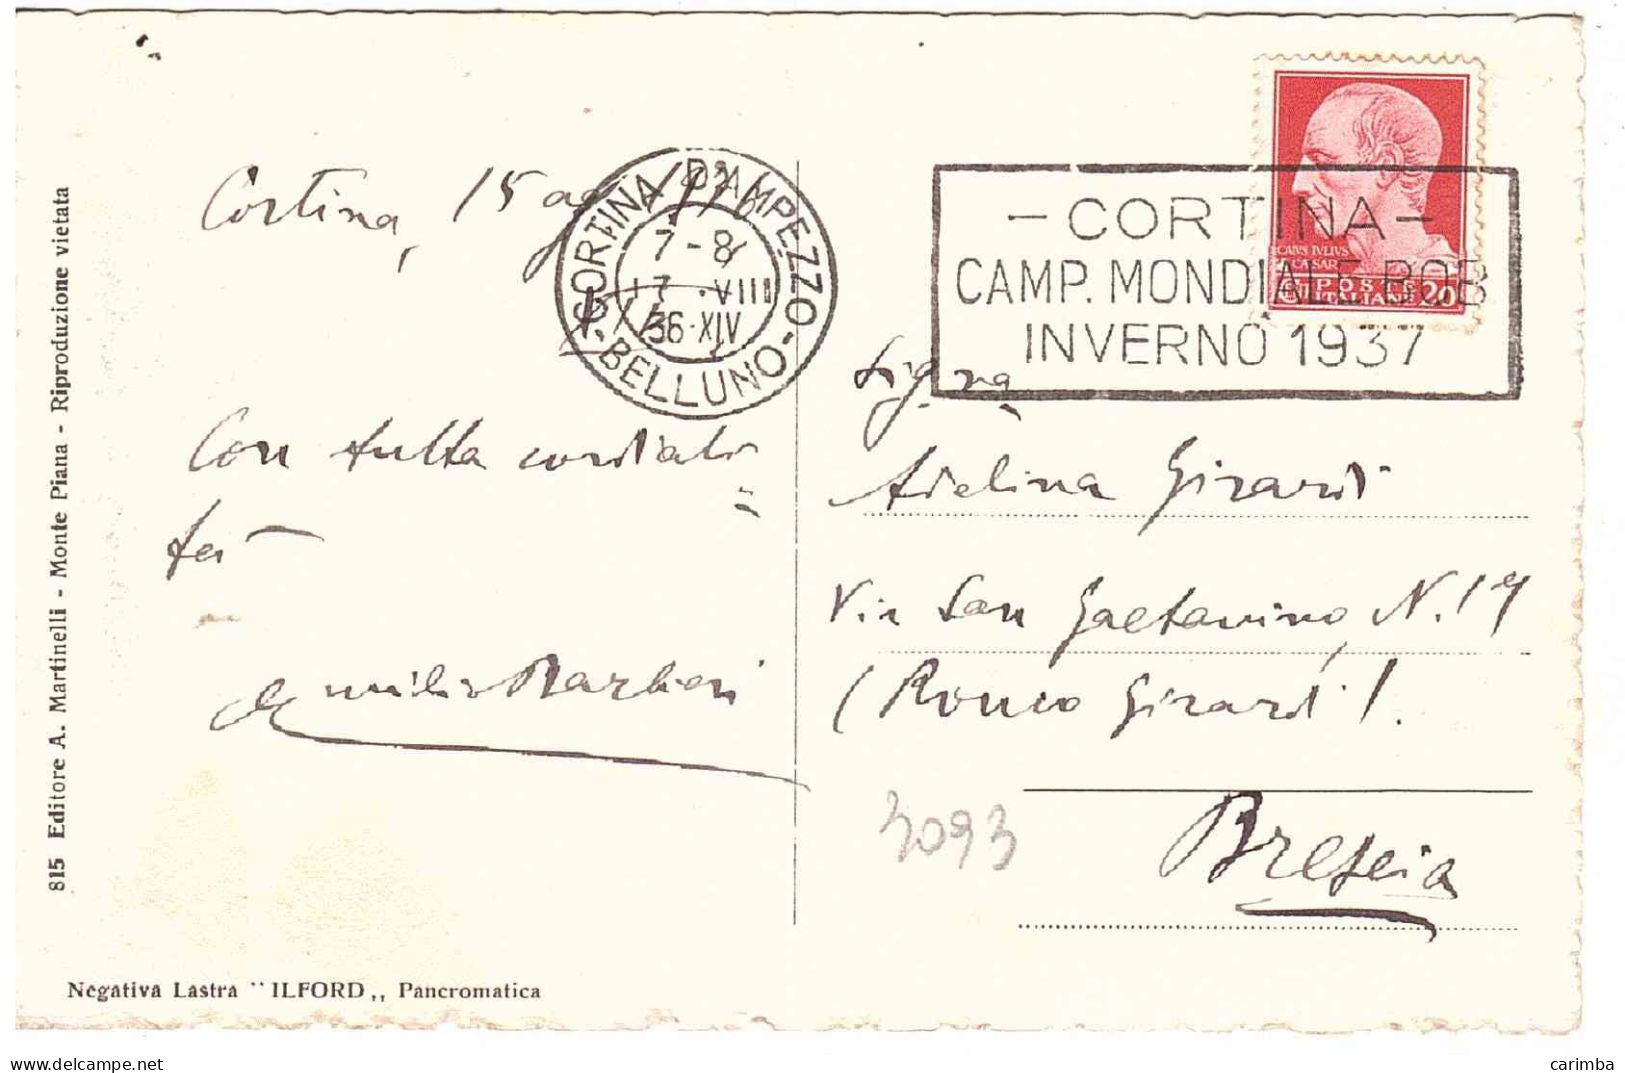 Cortina, 15 ag
CORTINA D'AMPEZZO
7-8
17.VIII
36-XIV
BELLUNO
- CORTINA -
CAMP. MONDIALE BOB
INVERNO 1937
CAIVS IVLIVS
CAESAR
POSTE
ITALIANE 20
Con tutta cordiali
tà
Emilio Barbieri
Sig.na
Adelina Girardi
Via San Gaetanino, N. 19
(Ronco Girardi).
Brescia
3093
815 Editore A. Martinelli - Monte Piana - Riproduzione vietata
Negativa Lastra "ILFORD,, Pancromatica
delcampe.net
carimba